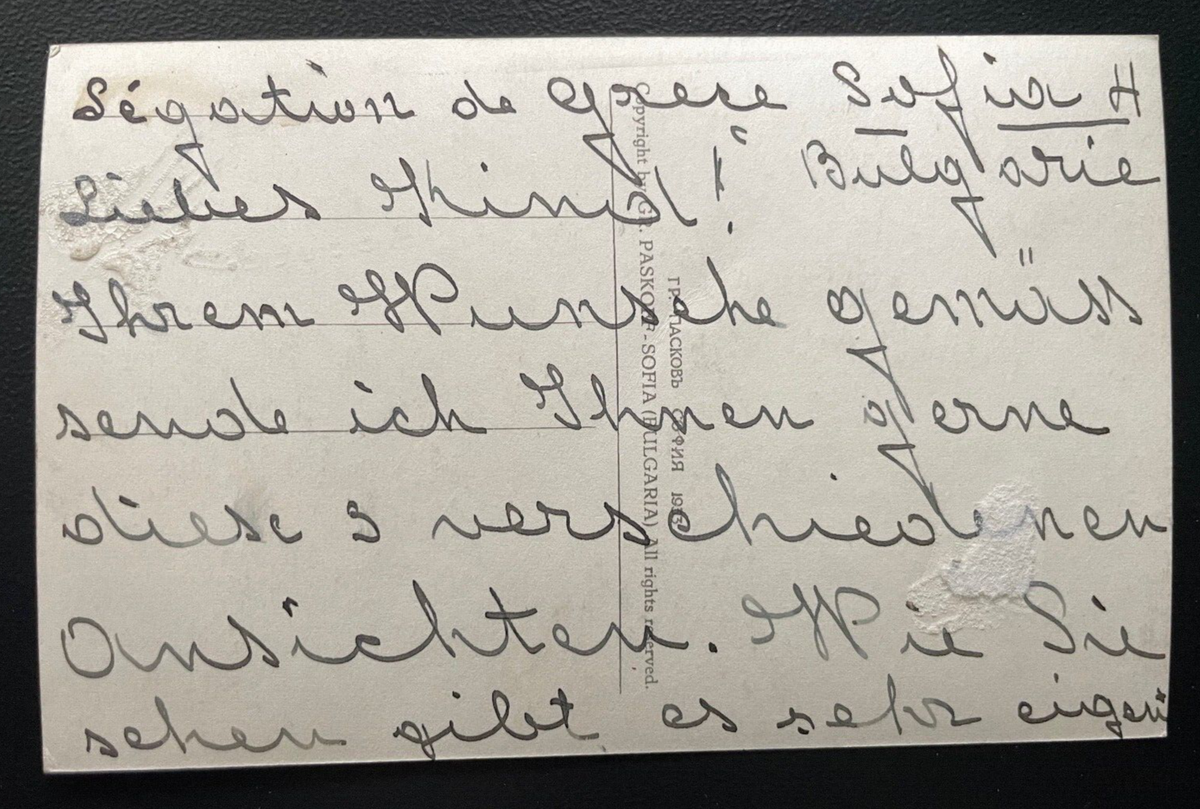 Légation de Grèce Sofia H
Bulgarie
Liebes Kind!
Ihrem Wunsche gemäss
sende ich Ihnen gerne
diese 3 verschiedenen
Ansichten. Wie Sie
sehen gibt es sehr eigen
Copyright by GR. PASKOFF - SOFIA (BULGARIA) All rights reserved.
ГР. ПАСКОВЪ СОФИЯ